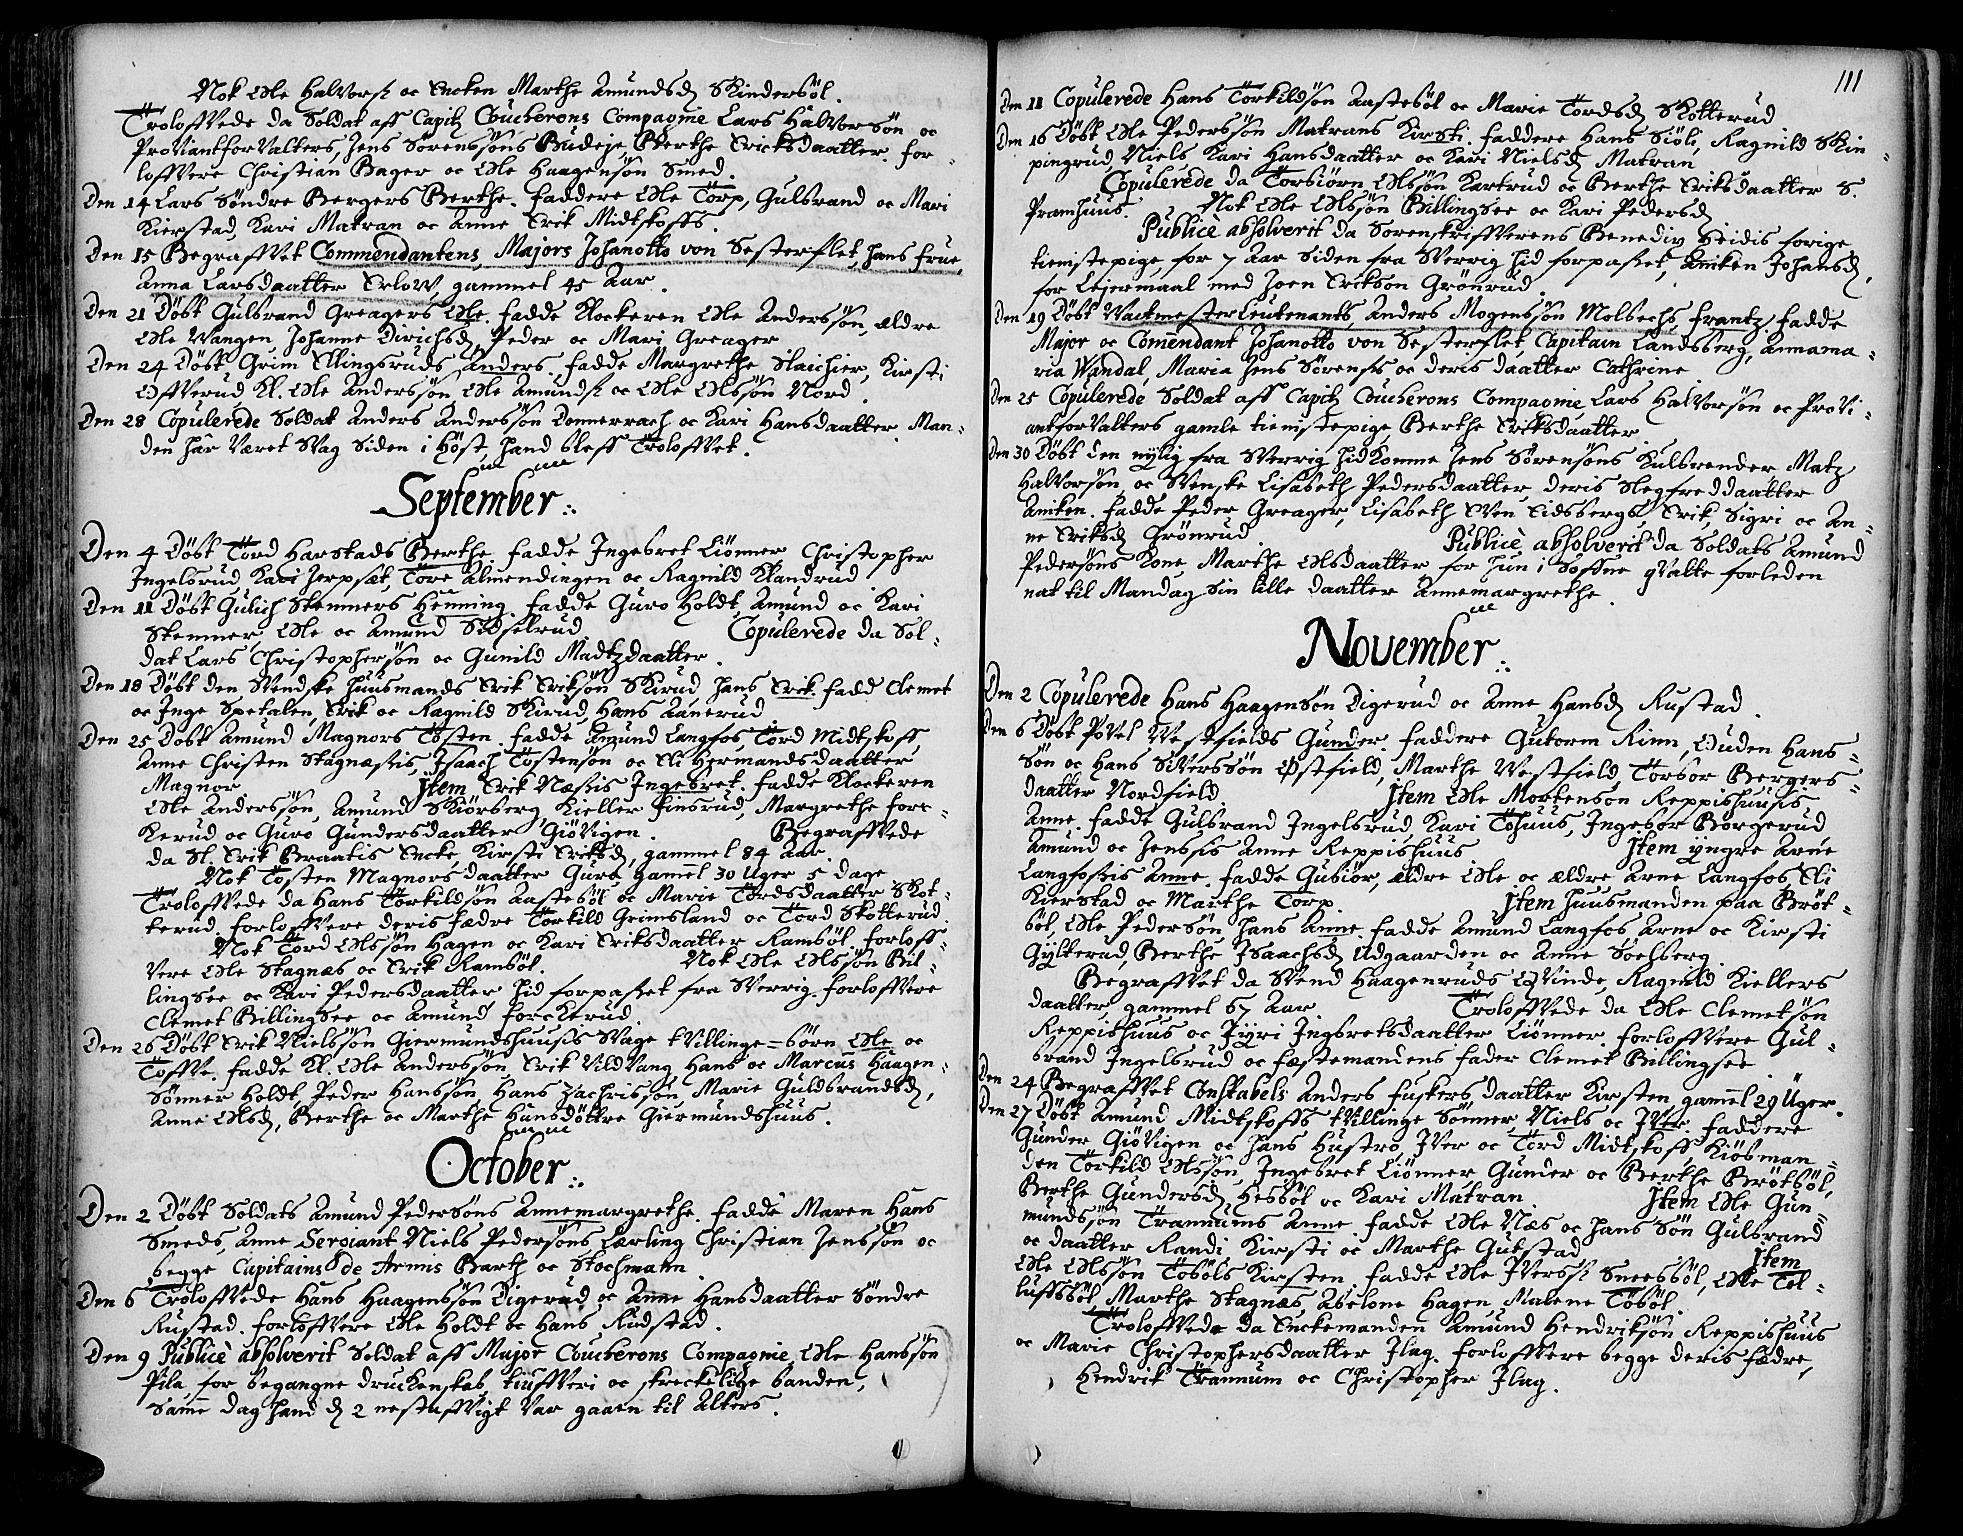 Nok Ole Halvorss: oc Encken Marthe Amundsd: Skindersböl.
Trolofvede da Soldat aff Capit: Coucherons Compagnie Lars Halvorsön oc
Proviantforvalters, Jens Sörensöns Budeje Berthe Ericksdaatter. For-
lofvere Christian Bager oc Ole Haagensön Smed.
Den 14 Lars Söndre Bergers Berthe. Faddere Ole Torp, Gulbrand oc Mari
Kierstad, Kari Matran oc Anne Erik Midtskofs.
Den 15 Begrafvet Commendantens, Majors Johanotto von Sesterflet, hans Frue,
Anna Larsdaatter Orlow, gammel 45 Aar.
Den 21 Döbt Gulbrand Greagers Ole. Fadde Klockeren Ole Anderssön, ældre
Ole Vangen, Johanne Dirichsd: Peder oc Mari Greager
Den 24 Döbt, Grim Ellingsruds Anders. Fadde Margrethe Slaichier, Kirsti
Ofverud, Kl. Ole Anderssön Ole Amundss: oc Ole Olssön Nord.
Den 28 Copulerede Soldat Anders Anderssön Donnerrach oc Kari Hansdaatter. Man-
den har været svag siden i Höst, hand blef Trolofvet.
September
Den 4 Döbt Tord Harstads Berthe. Fadde Ingebret Liönner Christopher
Ingelsrud Kari Jerpset, Tore Almendingen oc Ragnild Klandrud
Den 11 Döbt Gulich Stemmers Henning. Fadde Guro Holdt, Amund oc Kari
Stemmer, Ole oc Amund Sköselrud. Copulerede da Sol-
dat Lars Christophersön oc Gunild Madtzdaatter.
Den 18 Döbt den Svendske Huusmands Erik Eriksön Skirud, hans Erik. Fadd Clemet
oc Inge Spetalen, Erik oc Ragnild Skirud, Hans Aanerud
Den 25 Döbt Amund Magnors Tosten. Fadde Amund Langfos, Tord Midtskoff,
Anne Christen Stagnæssis, Isaach Tostensön oc Eli Hermandsdaatter
Magnor. Item Erik Næssis Ingebret. Fadde Klockeren
Ole Anderssön, Amund Skiörberg, Kieller Finsrud, Margrethe Forc-
kerud oc Guro Gundersdaatter Giövigen. Begrafvede
da Sl. Erik Braatis Encke, Kirsti Eriksd:, gammel 84 Aar.
Nok Tosten Magnors daatter Guro gamel 30 Uger 5 dage
Trolofvede da Hans Torkildsön Aastebol oc Marie Tordsdaatter Skot-
terud. Forlofvere deris Fædre Torkild Grimsland oc Tord Skotterud.
Nok Tord Olssön Hagen oc Kari Eriksdaatter Ramsöl. Forloff-
vere Ole Stagnæs oc Erik Ramsöl. Nok Ole Olssön Bil-
lingsee oc Kari Pedersdaatter hid forpasset fra Sverrig. Forlofvere
Clemet Billingsee oc Amund Forckerud
Den 26 Döbt Erik Nielssön Giermundshuusis svage tvillinge-börn Ole oc
Tofve. Fadde Kl. Ole Anderssön, Erik Vildvang, Hans oc Marcus Haagen-
sönner Holdt, Peder Hanssön, Hans Zachrissön, Marie Guldbrandsd:,
Anne Olsd:, Berthe oc Marthe Hansdöttre Giermundshuus.
October
Den 2 Döbt Soldats Amund Pedersöns Annemargrethe. Fadde Maren Hans
Smeds, Anne Sergiant Niels Pedersöns Lærling Christian Jenssön oc
begge Capitains de Armis Barth oc Stochmann
Den 6 Trolofvede Hans Haagenssön Digerud oc Anne Hansdaatter Söndre
Rustad. Forlofvere Ole Holdt oc Hans Rudstad.
Den 9 Publicè absolverit Soldat aff Major Coucherons Compagnie, Ole Hanssön
Pila, for begangne druckenskab, tiufveri oc skreckelige banden,
samme dag hand d: 2 nestafvigt var gaaen til Alters.
111
Den 11 Copulerede Hans Torkildsön Aastebol oc Marie Tordsd: Skotterud
Den 16 Döbt Ole Peders sön Matrans Kirsti. Faddere Hans Siöli, Ragnild Skin-
pingrud, Niels Kari Hansdaatter oc Kari Nielsd: Matran
Copulerede da Torbiörn Olssön Kartrud oc Berthe Eriksdaatter S.
Pramhuus. Nok Ole Olssön Billingsee oc Kari Pedersd:
Publicè absolverit da Sorenskrifverens Benedix Heidis forige
tienistepige, for 7 Aar siden fra Sverrig hid forpasset, Aniken Johansd:,
for Leiermaal med Joen Erikson Grönrud.
Den 19 Döbt Vactmester Leutenants, Anders Mogensön Molbechs, Frantz. Fadde
Major oc Commendant Johanotto von Sesterflet, Capitain Landsberg, Annama-
ria Wandal, Maria Jens Sörensis oc deris daatter Cathrine
Den 25 Copulerede Soldat aff Capit: Coucherons Compagnie Lars Halvorsön oc Provi-
antforvalters gamle tienistepige, Berthe Eriksdaatter.
Den 30 Döbt den nylig fra Sverrig hidkomne Jens Sörensöns Kulbrender Matz
Halvorsön oc Svenske Lisabeth Pedersdaatter, deris Slegfreddaatter
Aniken. Fadde Peder Greager, Lisabeth Sven Eidsbergs, Erik, Sigri oc An-
ne Eriksd: Grönrud. Publicè absolverit da Soldats Amund
Pedersöns Kone, Marthe Olsdaatter for hun i Söfne qvalte forleden
nat til Mandag sin lille daatter Annemargrethe.
November
Den 2 Copulerede Hans Haagensön Digerud oc Anne Hansd: Rustad.
Den 6 Döbt Povel Vestfields Gunder. Faddere Gutorm Rinn, Ouden Hans-
sön oc Hans Siverssön Östfield, Marthe Vestfield, Torbor Bergers-
daatter Nordfield. Item Ole Mortenson Reppishuusis
Anne. Fadde Gulbrand Ingelsrud, Kari Tohuus, Ingebor Borgerud,
Amund oc Jenssis Anne Reppishuus. Item yngre Arne
Langfossis Anne. Fadde Gubiör, ældre Ole oc ældre Arne Langfos, Eli
Kierstad oc Marthe Torp. Item Huusmanden paa Bröt-
böl, Ole Pedersön hans Anne. Fadde Amund Langfos Arne oc Kirsti
Gylterud, Berthe Isaachsd: Udgaarden oc Anne Soelberg.
Begrafvet da Svend Haagenruds Qvinde, Ragnild Kiellers
daatter, gammel 67 Aar. Trolofvede da Ole Clemetsön
Reppishuus oc Jyri Ingbretsdaatter Liönner. Forlofvere Gul-
brand Ingelsrud oc fæstemandens Fader Clemet Billingsee
Den 24 Begrafvet Constabels Anders Fuskers daatter Kirsten gamel 29 Uger.
Den 27 Döbt Amund Midtskofs tvillinge sönner, Niels oc Iver. Faddere
Gunder Giövigen oc hans Hustro, Iver oc Tord Midtskoff, Kiöbman-
den Torkild Olssön, Ingebret Liönner, Gunder oc Berthe Brötböl,
Berthe Gundersd: Hesböl oc Kari Matran. Item Ole Gun-
mundssön Trannums Anne. Fadde Ole Næs oc hans sön Gulbrand
oc daatter Randi, Kirsti oc Marthe Gutstad. Item
Ole Olssön Töböls Kirsten. Fadde Ole Iverss: Sneesböl, Ole Tol-
luffsböl, Marthe Stagnæs, Abelone Hagen, Malene Töböl.
Trolofvede da Enckemanden Amund Hendriksön Reppishuus
oc Marie Christophersdaatter Ilag. Forlofvere begge deris fædre,
Hendrik Trannum oc Christopher Ilag.